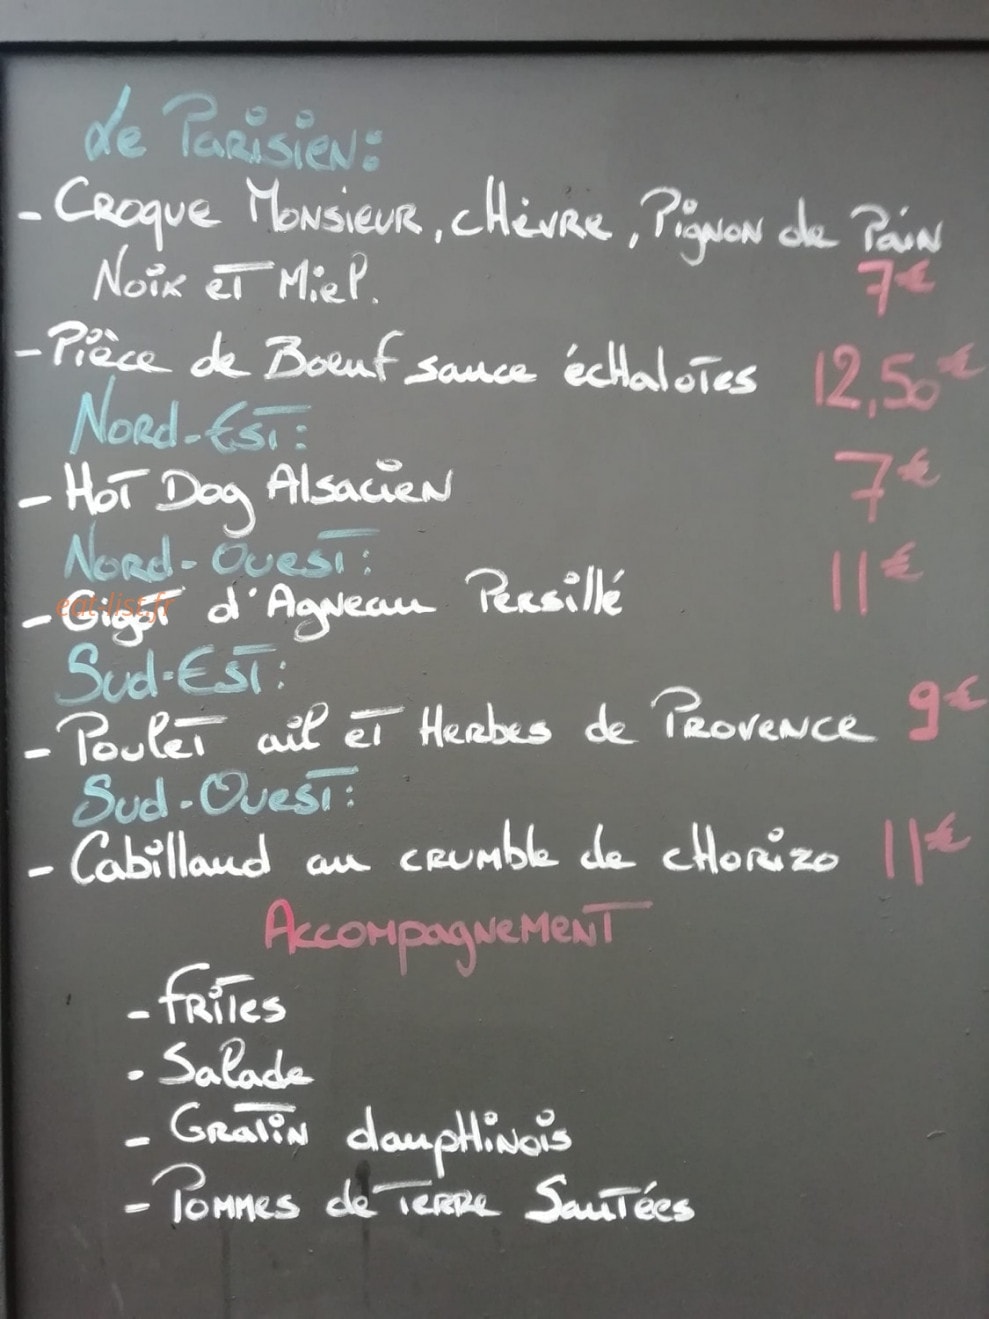 Le Parisien:
- Croque Monsieur, chèvre, Pignon de Pain
Noix et Miel.
7€
- Pièce de Boeuf sauce échalotes 12,50€
Nord-Est:
- Hot Dog Alsacien 7€
Nord-Ouest:
- Gigot d'Agneau Persillé 11€
eat-list.fr
Sud-Est:
- Poulet ail et Herbes de Provence 9€
Sud-Ouest:
- Cabillaud au crumble de chorizo 11€
Accompagnement
- Frites
- Salade
- Gratin dauphinois
- Pommes de Terre Sautées